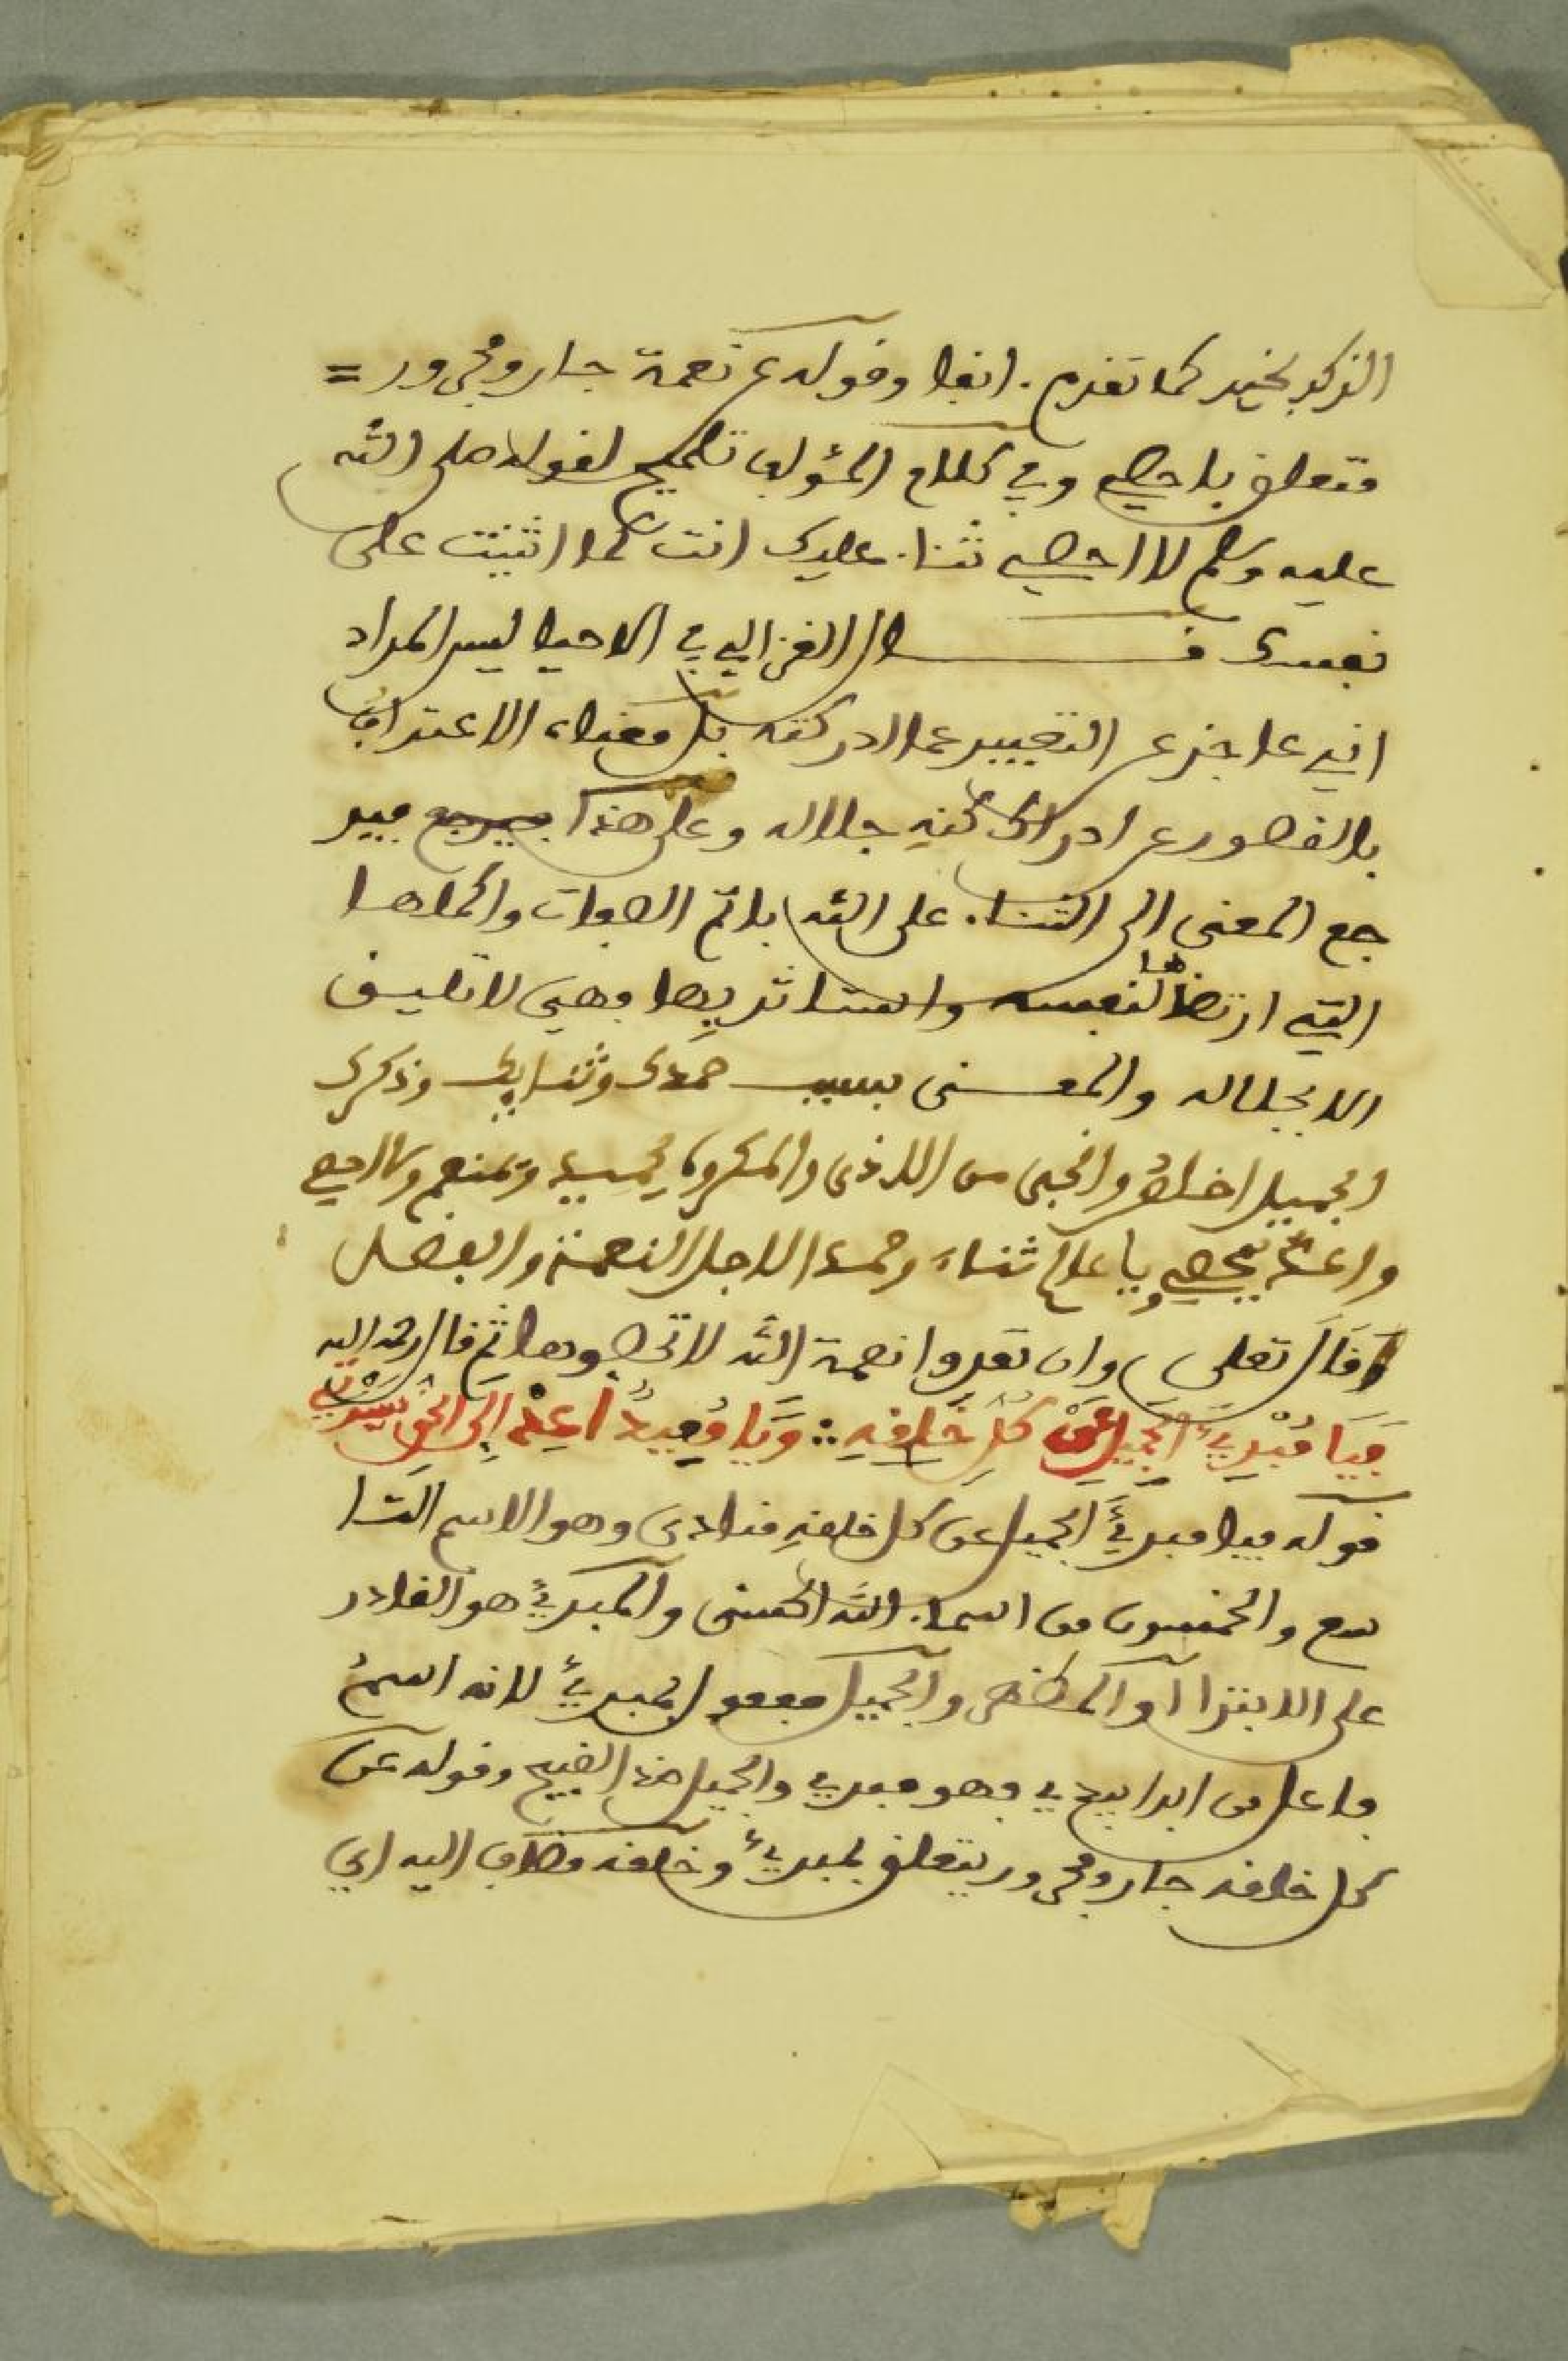 الذكر بخير كما تقدم. انفا وقوله عن نعمة جار ومجرور =
متعلق باحصي وفي كلام المؤلف تلميح لقوله صلى الله
عليه وسلم لا احصي ثناء عليك انت كما اثنيت على
نفسك قال الغزالي في الاحيا ليس المراد
اني عاجز عن التعبير عما ادركته بل معناه الاعتراف
بالقصور عن ادراك كنه جلاله وعلى هذا فيرجع فير
جع المعنى الى الثناء على الله باتم الصفات واكملها
التي ارتضاها لنفسه واستاثر بها فهي لا تليق
الا بجلاله والمعنى بسبب حمدك وثنايك وذكرك
الجميل من الاذى والمكروه
ثناء وحمدا لاجل النعمة والفضل
وقال تعلى وان تعدوا نعمة الله لا تحصوها ثم قال رحمه الله
فَيَا مُبْدِئَ الجميل عَنْ كُلِّ خَلْقِهِ :: وَيَا مُعِيدُ أعِدْ إلى الحق سيرتي
قوله فيا مبدئَ الجميل عن كل خلقه منادى وهو الاسم التا
سع والخمسون من اسماء الله الحسنى والمبدئ هو القادر
على الابتدا او المظهر والجميل مفعول لمبدئ لانه اسم
فاعل من ابدا يبدي فهو مبدي والجميل ضد القبيح وقوله عن
كل خلقه جار ومجرور يتعلق بمبدئ وخلقه مضاف اليه اي